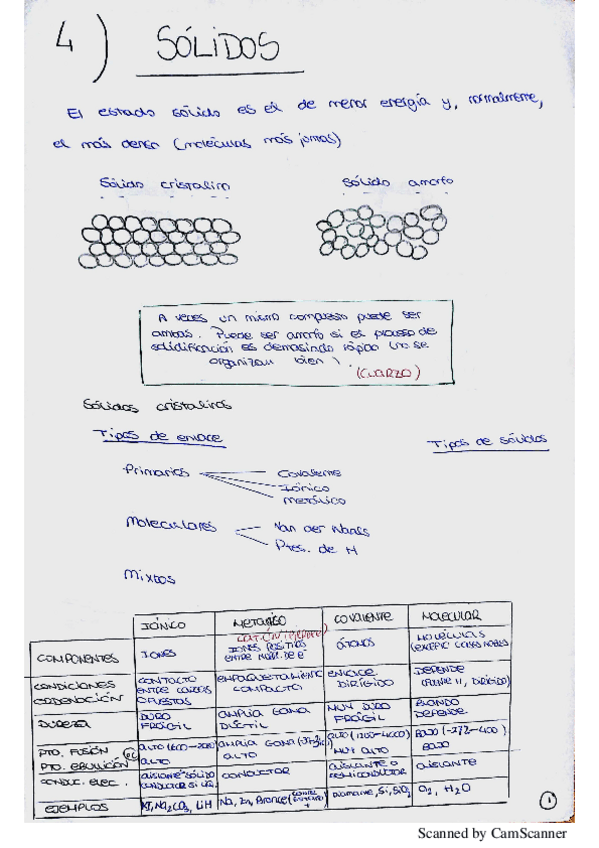 4) SÓLIDOS
El estado sólido es el de menor energía y, normalmente,
el más denso (moléculas más juntas)
Sólido cristalino
Sólido amorfo
A veces un mismo compuesto puede ser
ambas. Puede ser amorfo si el proceso de
solidificación es demasiado rápido (no se
organizan bien).
(CUARZO)
Sólidos cristalinos
Tipos de enlace
Tipos de sólidos
Primarios
Covalente
Iónico
Metálico
Moleculares
Van der Waals
Pres. de H
Mixtos
IÓNICO METÁLICO COVALENTE MOLECULAR
COMPONENTES IONES IONES POSITIVOS ENTRE NUBE DE e⁻ ÁTOMOS MOLÉCULAS (EXCEPTO GASES NOBLES)
CONDICIONES ORDENACIÓN CONTACTO ENTRE CARGAS OPUESTAS EMPAQUETAMIENTO COMPACTO ENLACE DIRIGIDO DEPENDE
DUREZA DURO FRÁGIL AMPLIA GAMA DÚCTIL MUY DURO FRÁGIL BLANDO DEPENDE
PTO. FUSIÓN (ºC) PTO. EBULLICIÓN ALTO ALTO AMPLIA GAMA ALTO ALTO (1200-4000) MUY ALTO BAJO (-272-400) BAJO
CONDUC. ELEC. AISLANTE SÓLIDO CONDUCTOR CONDUCTOR AISLANTE O SEMICONDUCTOR AISLANTE
EJEMPLOS KI, Na₂CO₃, LiH Na, Zn, Bronce DIAMANTE, Si, SiO₂ O₂, H₂O
1
Scanned by CamScanner